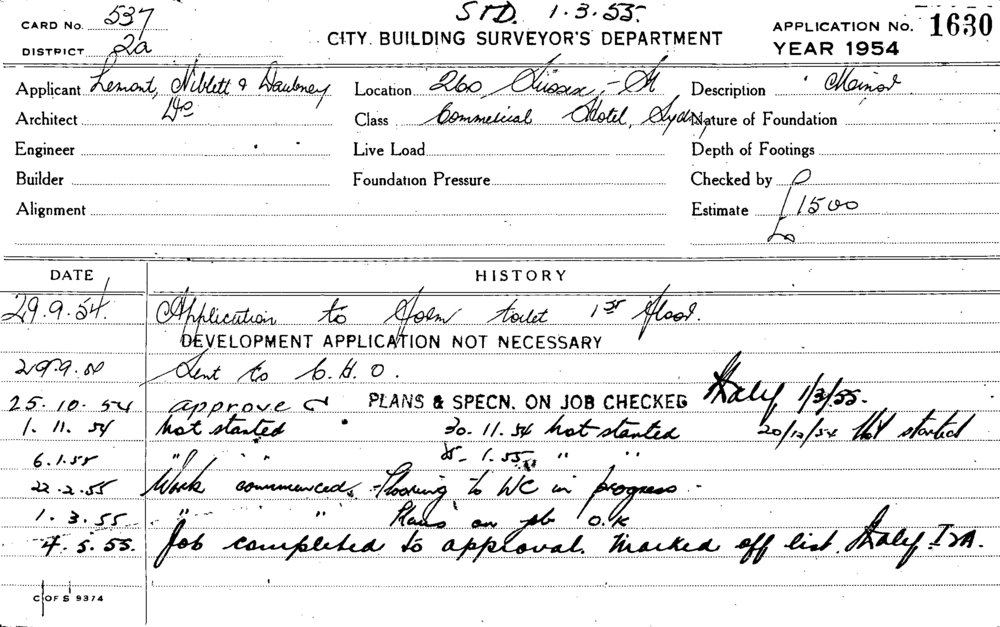 CARD No. 537 STD. 1.3.55. APPLICATION No. 1630
DISTRICT 2a CITY BUILDING SURVEYOR'S DEPARTMENT YEAR 1954
Applicant Lemont, Niblett & Daubney Location 260 Sussex St Description Minor
Architect Do Class Commercial Hotel, Sydney Nature of Foundation
Engineer Live Load Depth of Footings
Builder Foundation Pressure Checked by
Alignment Estimate £1500
DATE HISTORY
29.9.54. Application to form toilet 1st Floor.
DEVELOPMENT APPLICATION NOT NECESSARY
29.9. Sent to C.H.O.
25.10.54 approved PLANS & SPECN. ON JOB CHECKED Haley 1/3/55.
1.11.54 not started 30.11.54 not started 20/12/54 Not started
6.1.55 " " 1.55 " "
22.2.55 Work commenced. Flooring to WC in progress -
1.3.55 " " Plans on job O.K
4.5.55. Job completed to approval. Marked off list. Haley
C OF S 9374